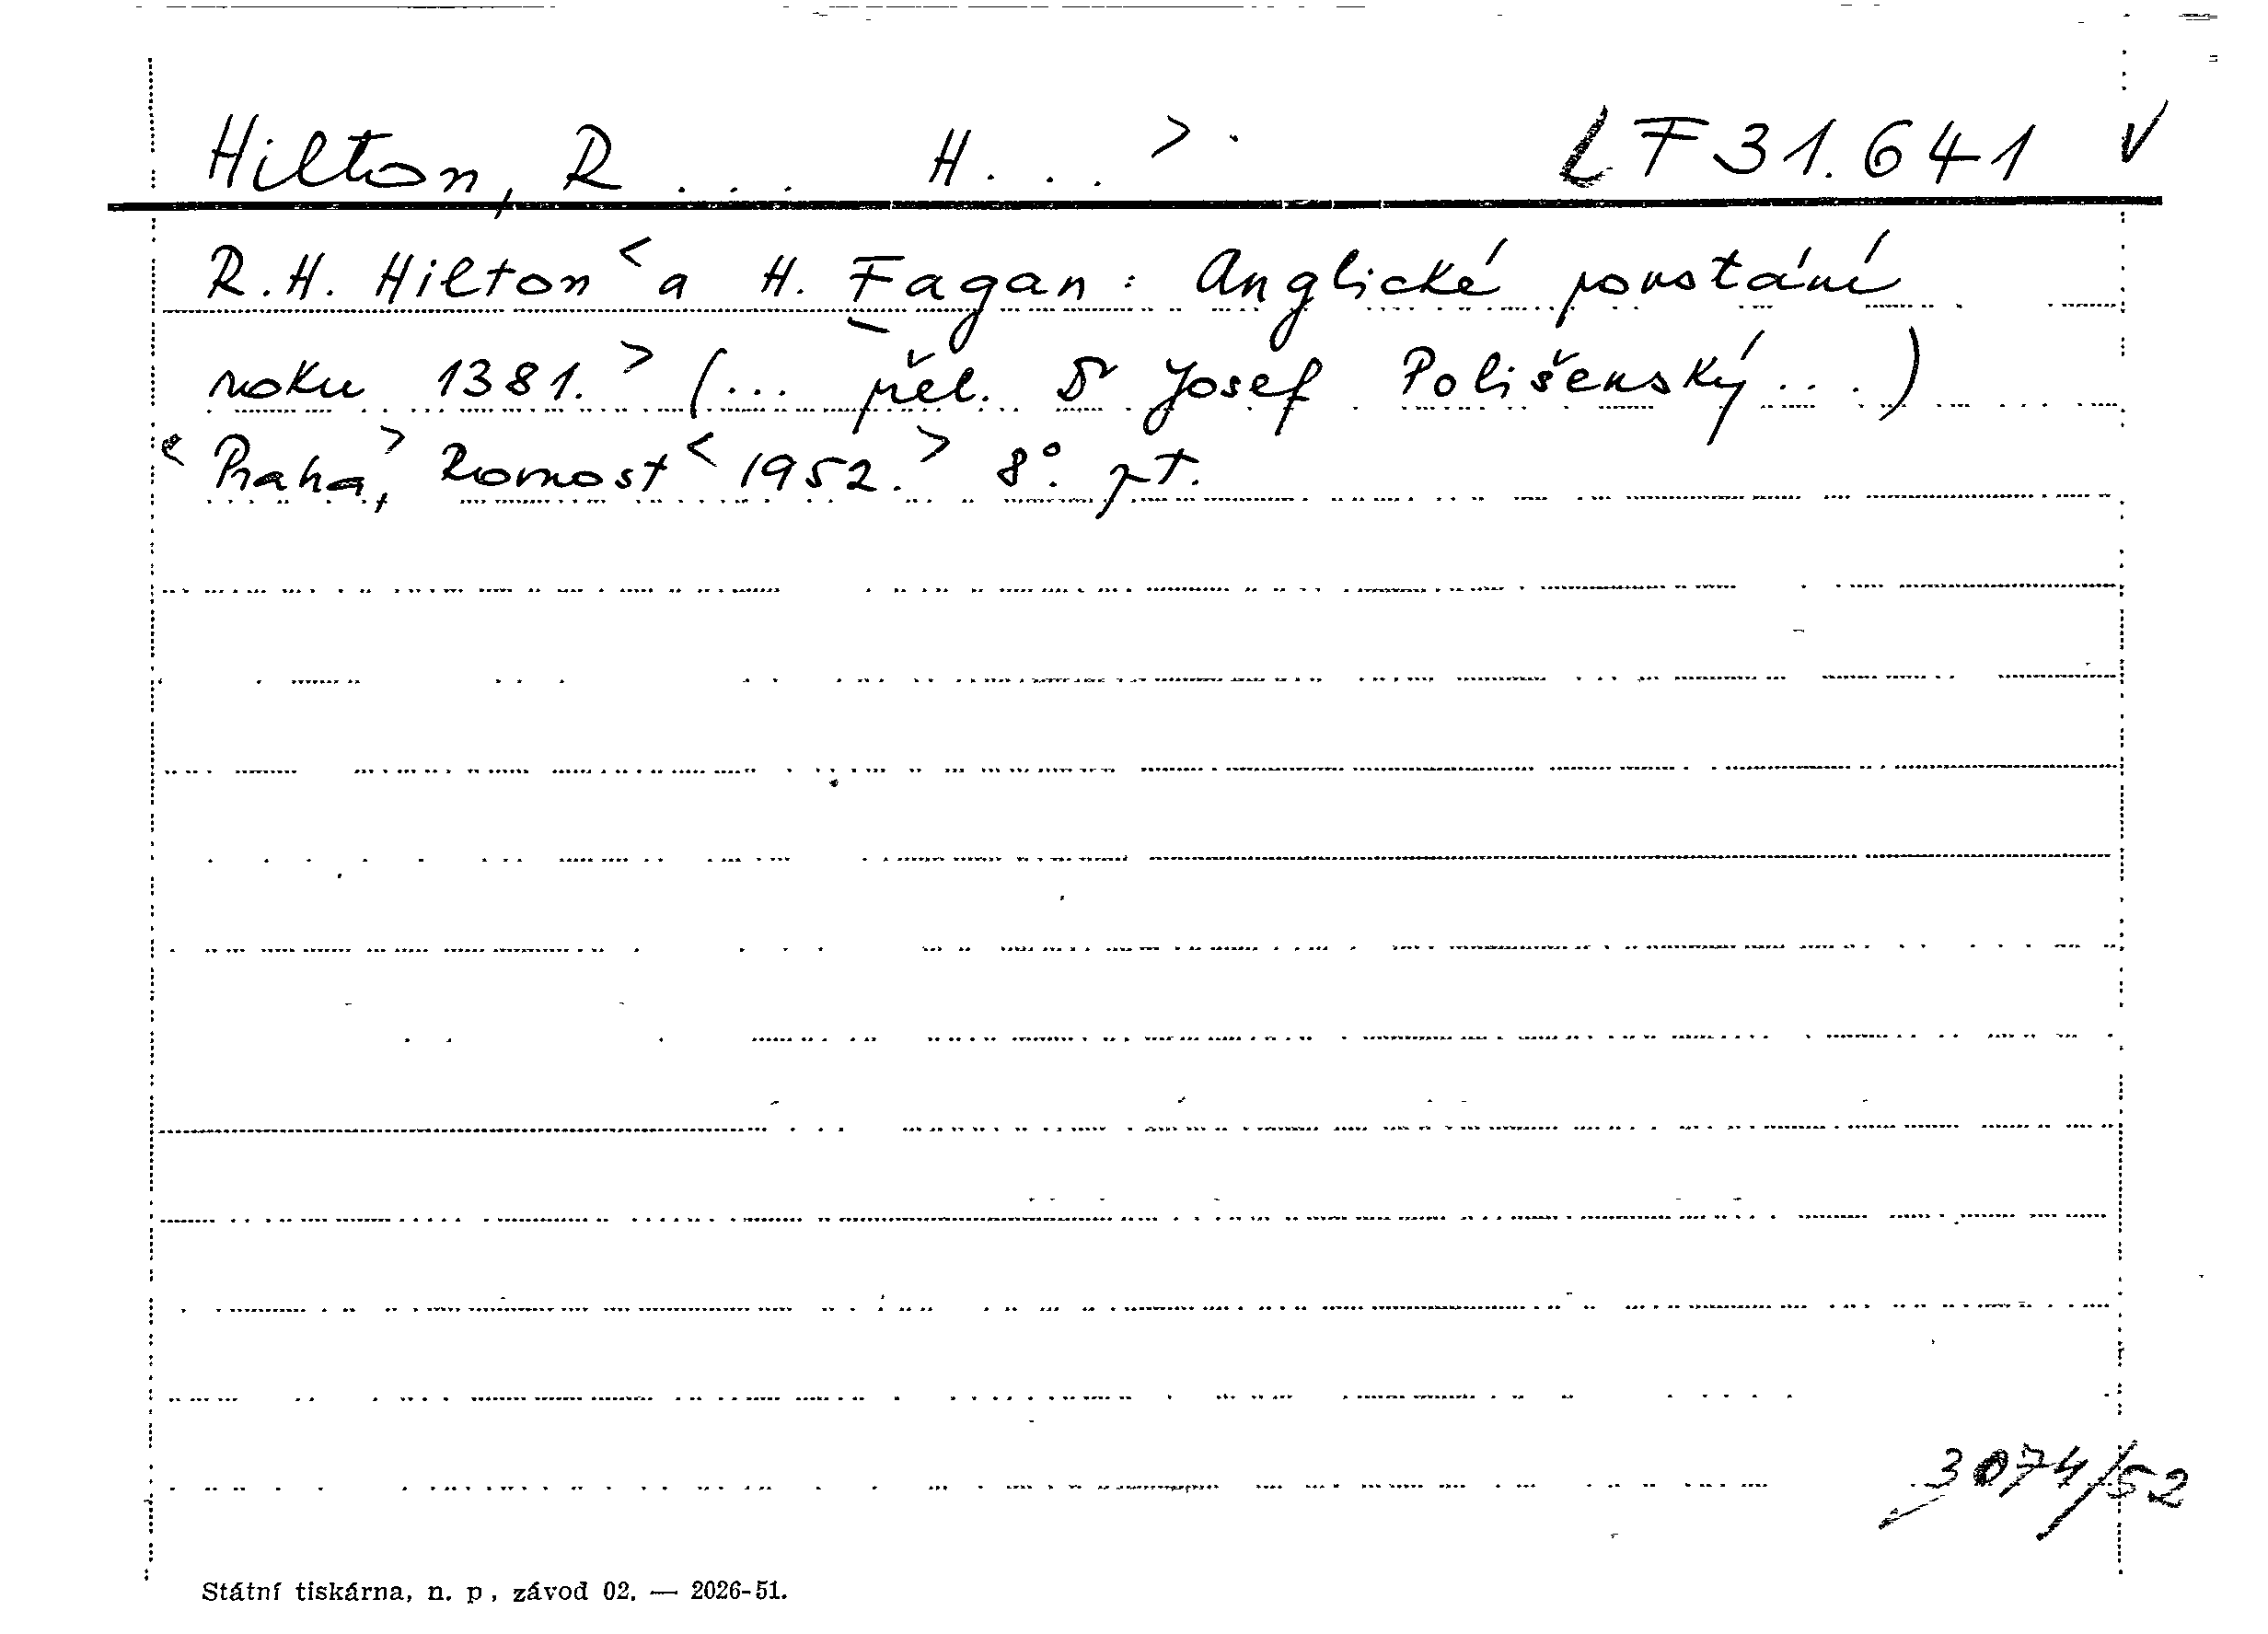 Hilton, R... H...> . LF 31.641 V
R.H. Hilton < a H. Fagan: Anglické povstání
roku 1381. > (... přel. Dr Josef Polišenský...)
< Praha, > Rovnost < 1952. > 8°. pt.
3074/52
Státní tiskárna, n. p., závod 02. — 2026-51.